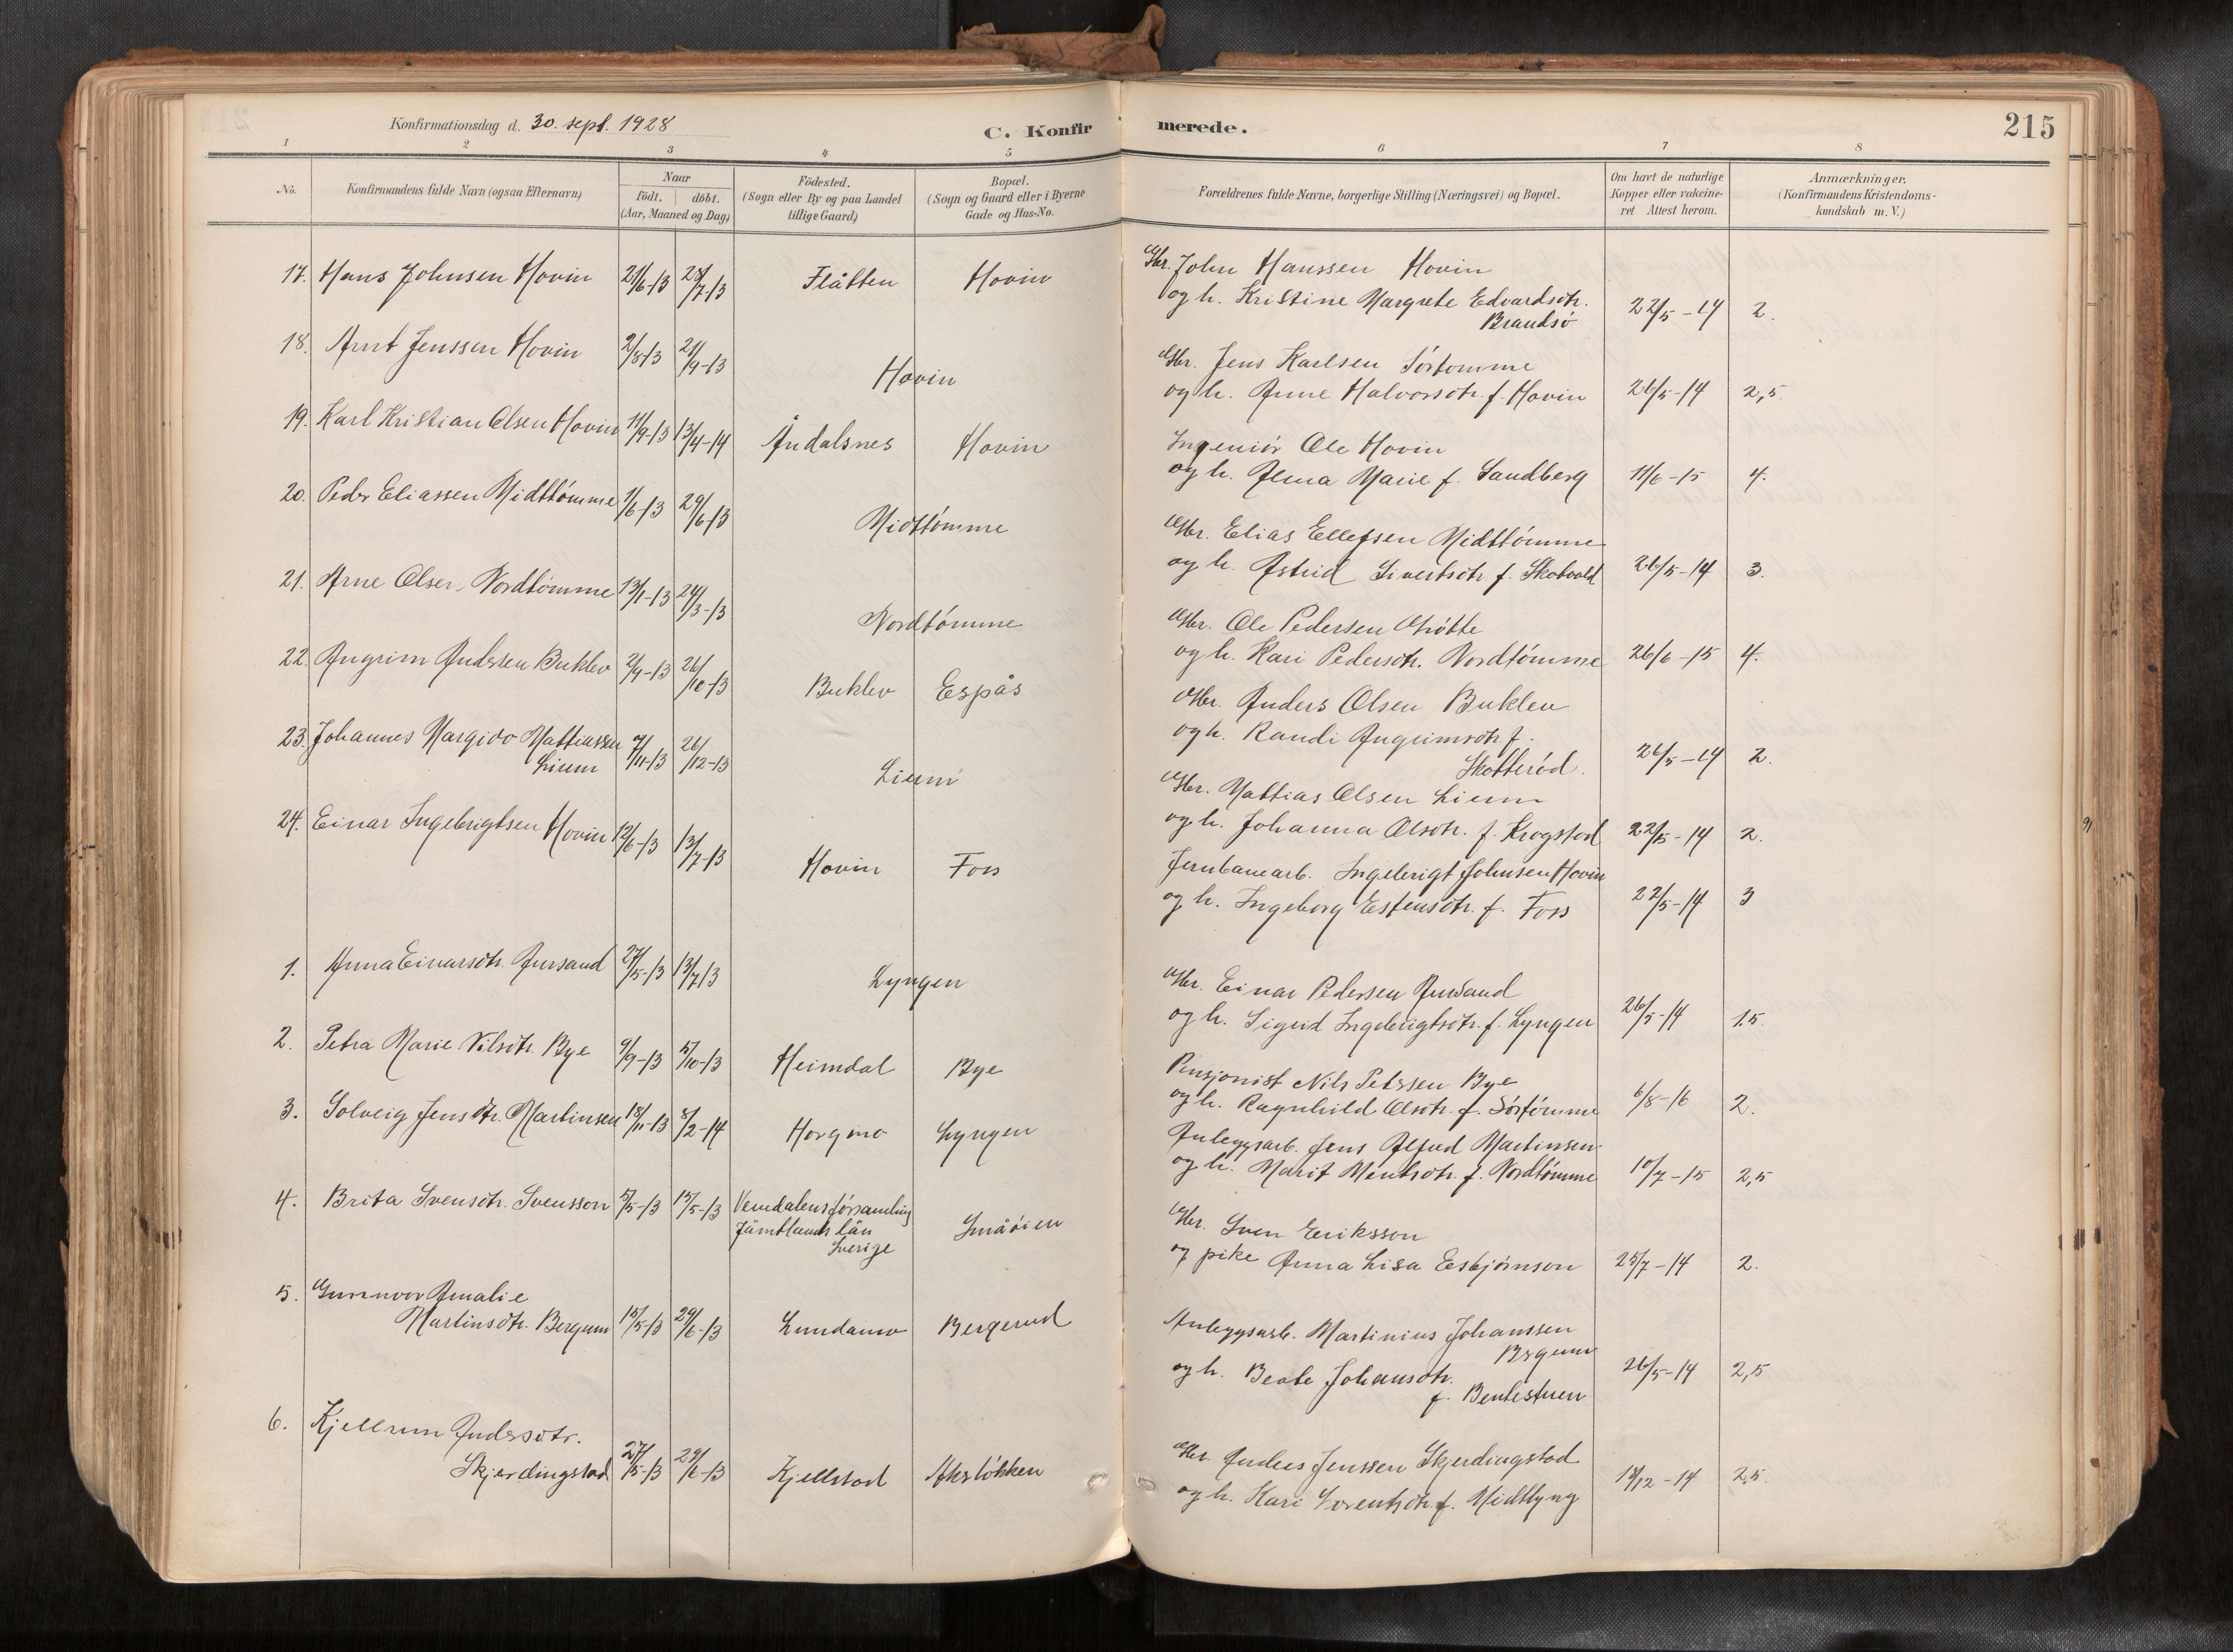 Konfirmationsdag d. 30. sept. 1928
C. Konfirmerede.
215
1 2 3 4 5 6 7 8
No.
Konfirmandens fulde Navn (ogsaa Efternavn)
Naar
födt. döbt.
(Aar, Maaned og Dag)
Födested.
(Sogn eller By og paa Landet
tillige Gaard)
Bopæl.
(Sogn og Gaard eller i Byerne
Gade og Hus-No.
Forældrenes fulde Navne, borgerlige Stilling (Næringsvei) og Bopæl.
Om havt de naturlige
Kopper eller vakcine-
ret Attest herom.
Anmærkninger,
(Konfirmandens Kristendoms-
kundskab m. V.)
17. Hans Johnsen Hovin 21/6-13 28/7-13 Flåtten Hovin
Gbr. John Hanssen Hovin
og h. Kristine Margrete Edvardsdtr.
Brandsö 22/5-14 2.
18. Arnt Jenssen Hovin 2/8-13 21/9-13 Hovin
Gbr. Jens Karlsen Sörtömme
og h. Anne Halvorsdtr. f. Hovin 26/5-14 2,5.
19. Karl Kristian Olsen Hovin 11/9-13 13/4-14 Åndalsnes Hovin
Ingeniör Ole Hovin
og h. Alma Marie f. Sandberg 11/6-15 4.
20. Peder Eliassen Midttömme 1/6-13 29/6-13 Midttömme
Gbr. Elias Ellefsen Midttömme
og h. Astrid Sivertsdtr f. Skotvold 26/5-14 3.
21. Arne Olsen Nordtömme 13/1-13 24/3-13 Nordtömme
Gbr. Ole Pedersen
og h. Kari Pedersdtr. Nordtömme 26/6-15 4.
22. Angrim Andersen Buklev 2/9-13 26/10-13 Buklev Espås
Gbr. Anders Olsen Buklev
og h. Randi Angrimsdtr f.
Skötteröd. 26/5-14 2.
23. Johannes Margido Mattiassen
Lium 7/11-13 26/12-13 Lium
Gbr. Mattias Olsen Lium
og h. Johanna Olsdtr. f. Krogstad 22/5-14 2.
24. Einar Ingebrigtsen Hovin 12/6-13 13/7-13 Hovin Foss
Jernbanearb. Ingebrigt Johnsen Hovin
og h. Ingeborg Estensdtr. f. Foss 22/5-14 3
1. Anna Einarsdtr. Aursand 27/5-13 13/7-13 Lyngen
Gbr. Einar Pedersen Aursand
og h. Sigrid Ingebrigtsdtr. f. Lyngen 26/5-14 1.5.
2. Petra Marie Nilsdtr. Bye 9/9-13 5/10-13 Heimdal Bye
Pensjonist Nils Petersen Bye
og h. Ragnhild Olsdtr. f. Sörtömme 6/8-16 2.
3. Solveig Jensdtr. Martinsen 18/11-13 8/2-14 Horgmo Lyngen
Anleggsarb. Jens Alfred Martinsen
og h. Marit Mentsdtr. f. Nordtömme 10/7-15 2,5
4. Brita Svensdtr. Svensson 5/5-13 15/5-13 Vemdalens församling
Jämtlands län
Sverige Småöien
Gbr. Sven Eriksson
og pike Anna Lisa Esbjörnson 25/7-14 2.
5. Gunnvor Amalie
Martinsdtr. Bergum 15/5-13 29/6-13 Lundamo Bergerud
Anleggsarb. Martinius Johanssen
Bergum
og h. Beate Johansdtr.
f. Bentestuen 26/5-14 2,5
6. Kjellrun Andersdtr.
Skjerdingstad 27/5-13 29/6-13 Kjellstad Akslökken
Gbr. Anders Jenssen Skjerdingstad
og h. Kari Lorentsdtr. f. Midtlyng 18/12-14 2,5.
91